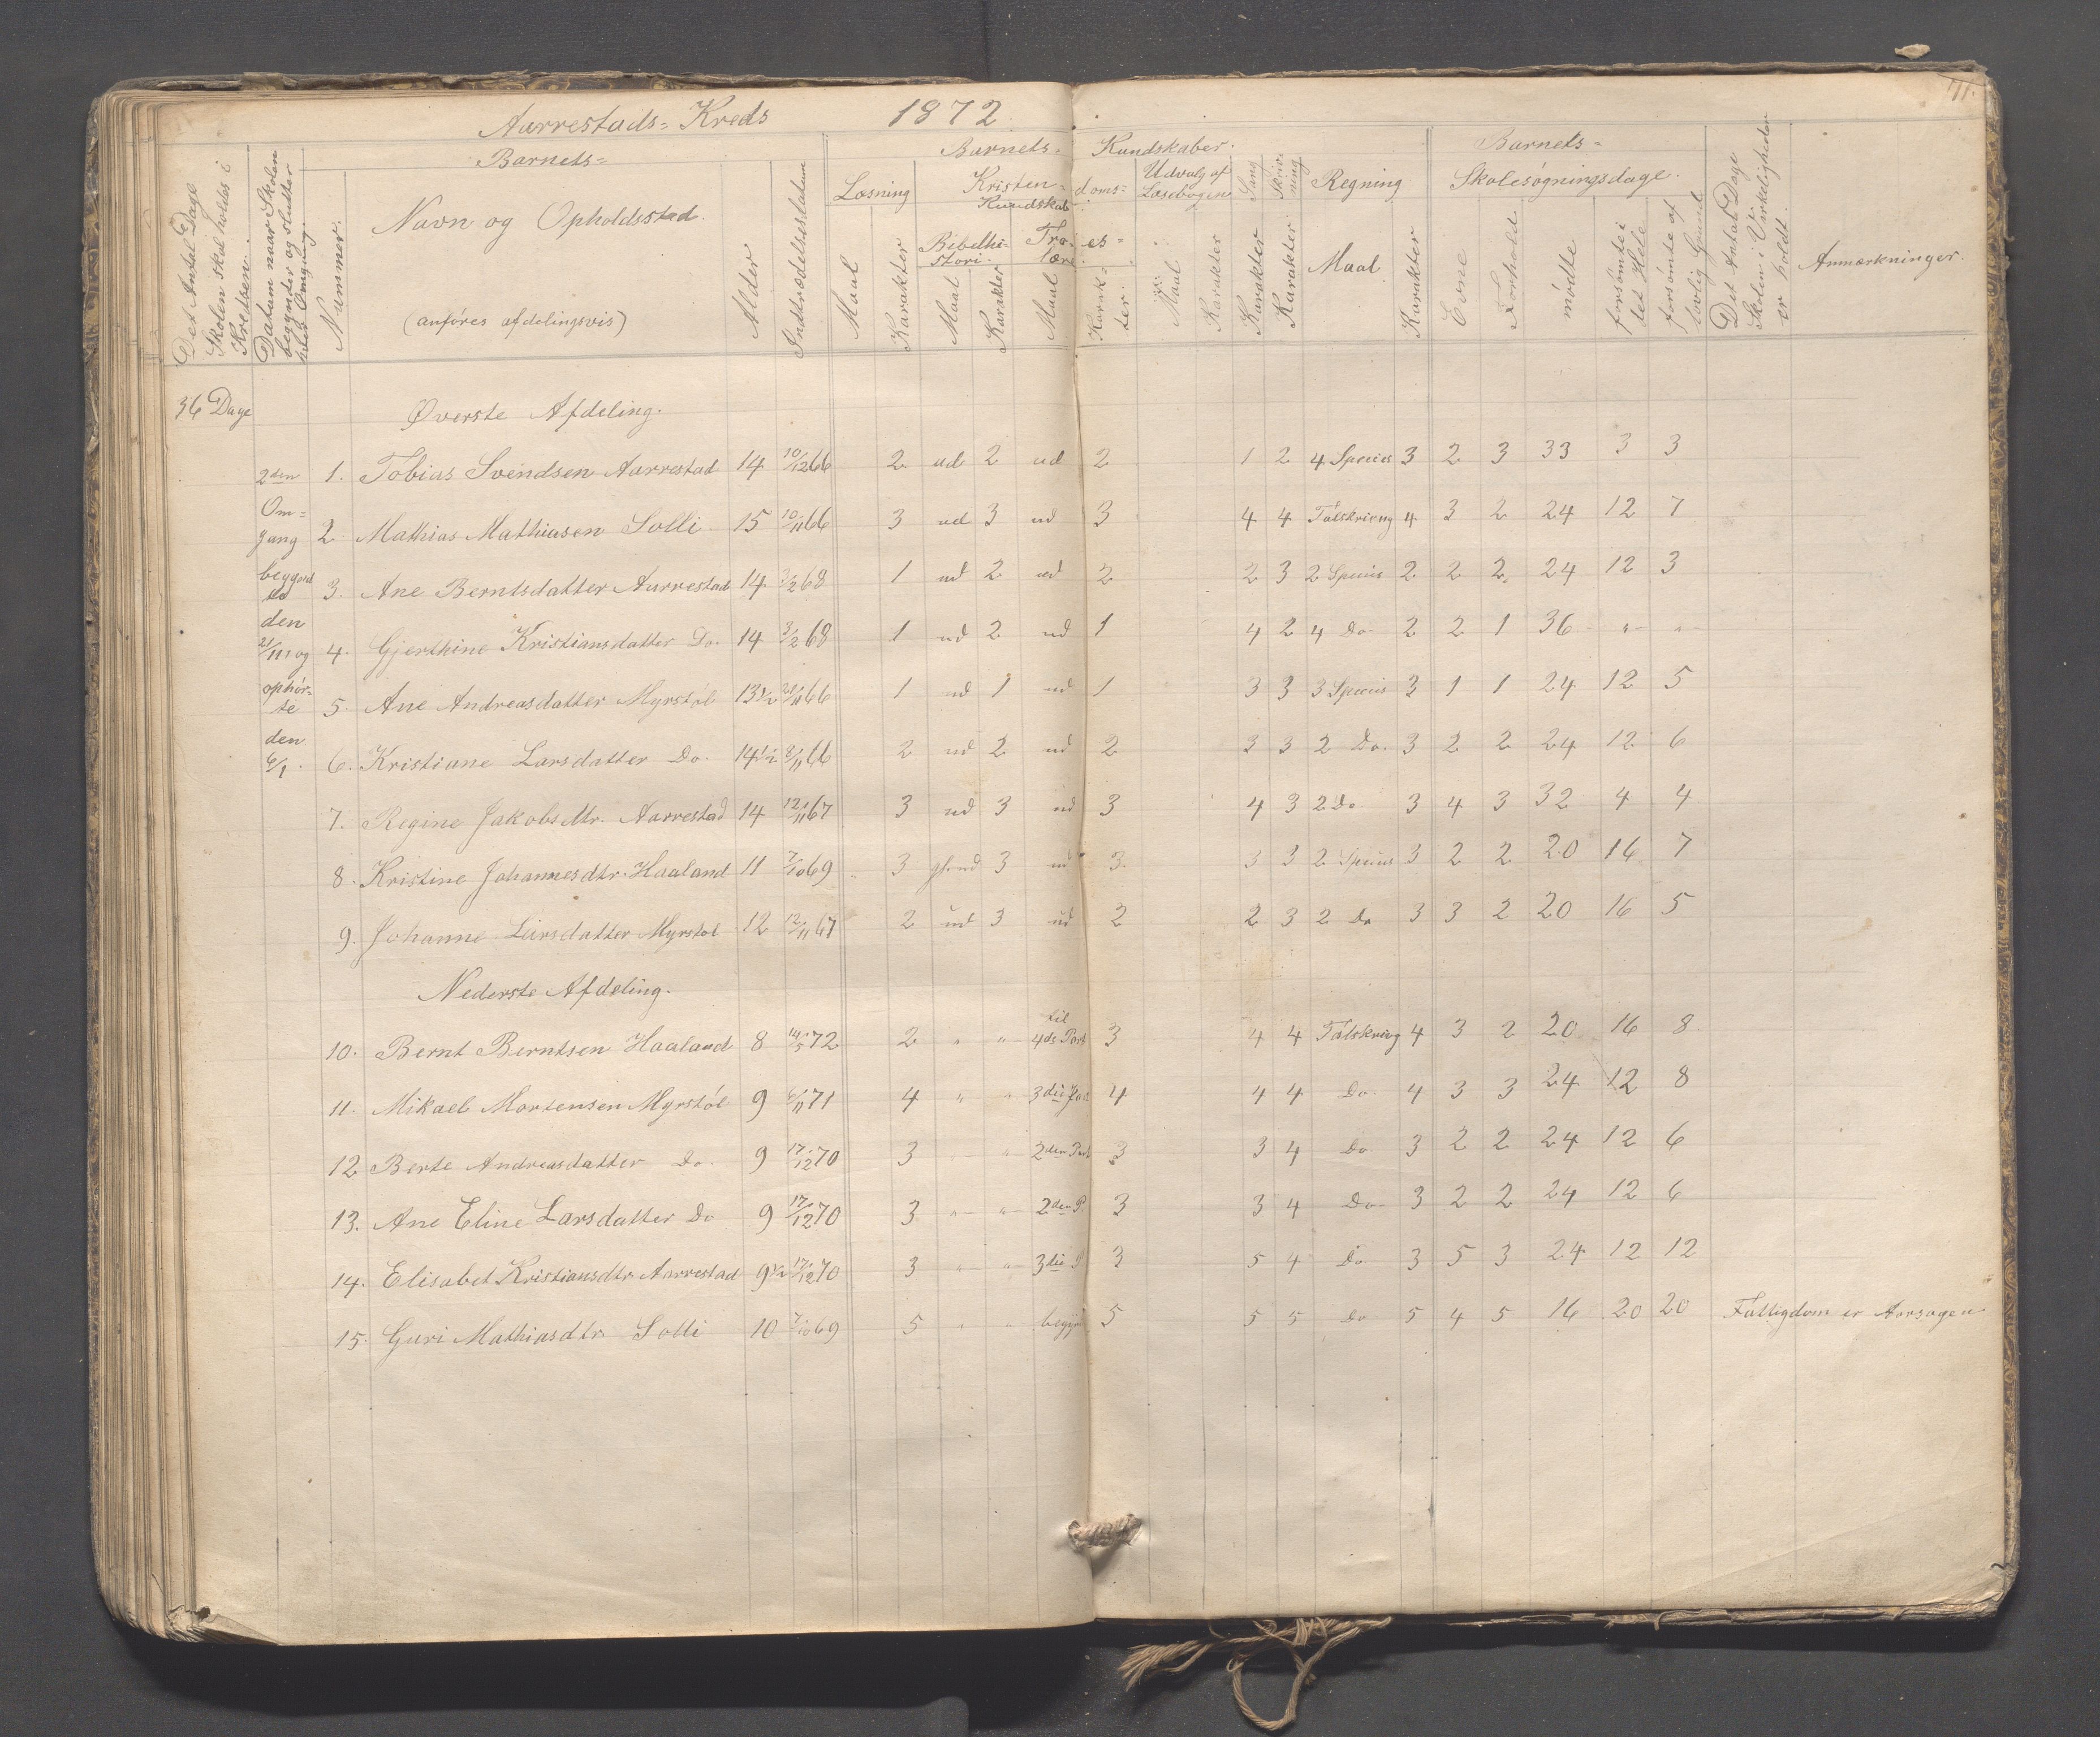 71.
Aarrestads= Kreds 1872
Det Antal Dage Skolen skal holdes i Kredsen.
Datum naar Skolen begynder og slutter hver Omgang.
Nummer.
Barnets=
Navn og Opholdsstad.
(anføres afdelingsvis)
Alder
Indtrædelsesdatum
Barnets= Kundskaber.
Læsning
Maal
Karakter
Kristen=doms=
Kundskab
Bibelhi=
stori.
Maal
Karakter
Tro=es=
lære.
Maal
Karak=
ter.
Udvalg af
Læsebogen
Maal
Karakter
Sang
Karakter
Skriv=
ning
Karakter
Regning
Maal
Karakter
Barnets=
Skolesøgningsdage.
Evne
Forhold
mødte
forsømte i det Hele
forsømte af lovlig Grund
Det Antal Dage Skolen i Virkeligheden er holdt.
Anmærkninger.
36 Dage
Øverste Afdeling.
2den 1. Tobias Svendsen Aarrestad 14 10/12 66 2 ud 2 ud 2 1 2 4 Species 3 2 3 33 3 3
Om=
gang 2 Mathias Mathiasen Solli 15 10/11 66 3 ud 3 ud 3 4 4 Talskrivng 4 3 2 24 12 7
3. Ane Berntsdatter Aarrestad 14 3/2 68 1 ud 2 ud 2 2 3 2 Species 2 2 2 24 12 3
den
21/11 og 4. Gjerthine Kristiansdatter Do. 14 3/2 68 1 ud 2 ud 1 4 2 4 Do 2 2 1 36 " "
ophør=
te 5. Ane Andreasdatter Myrstøl 13 1/2 21/11 66 1 ud 1 ud 1 3 3 3 Species 3 1 1 24 12 5
den
6/1. 6. Kristiane Larsdatter Do. 14 1/2 8/11 66 2 ud 2 ud 2 3 3 2 Do. 3 2 2 24 12 6
7. Regine Jakobsdtr. Aarrestad 14 12/11 67 3 ud 3 ud 3 4 3 2 Do 3 4 3 32 4 4
8. Kristine Johannesdtr. Haaland 11 7/10 69 3 3 ud 3. 3 3 2 Species 3 2 2 20 16 7
9. Johanne Larsdatter Myrstøl 12 12/11 67 2 ud 3 ud 2 2 3 2 Do 3 3 2 20 16 5
Nederste Afdeling.
10. Bernt Berntsen Haaland 8 14/5 72 2 " " til 4de Part 3 4 4 Talskrivng 4 3 2 20 16 8
11. Mikael Mortensen Myrstøl 9 6/11 71 4 " " 3die Part 4 4 4 Do 4 3 3 24 12 8
12 Berte Andreasdatter Do. 9 17/12 70 3 " " 2den Part 3 3 4 Do 3 2 2 24 12 6
13. Ane Eline Larsdatter Do 9 17/12 70 3 " " 2den P. 3 3 4 Do 3 2 2 24 12 6
14. Elisabet Kristiansdtr Aarrestad 9 1/2 17/12 70 3 " " 3die P 3 5 4 Do 3 5 3 24 12 12
15. Guri Mathiasdtr Solli 10 7/10 69 5 " " 5 5 5 Do 5 4 5 16 20 20 Fattigdom er Aarsagen